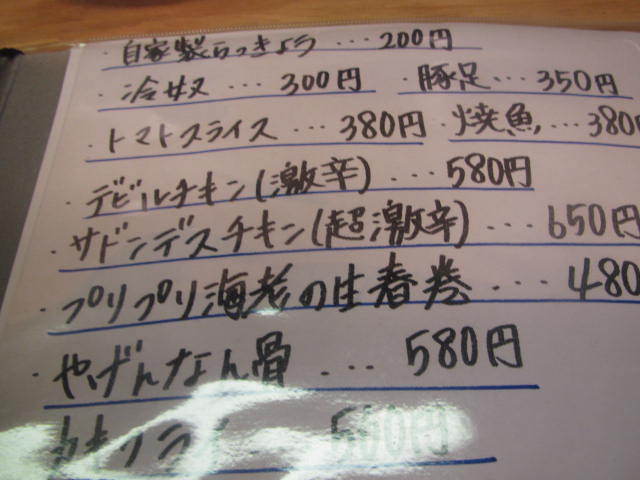 ・自家製らっきょう…200円
・冷奴…300円 ・豚足…350円
・トマトスライス…380円 ・焼魚…380円
・デビルチキン(激辛)…580円
・サドンデスチキン(超激辛)…650円
・プリプリ海老の生春巻…480
・やげんなん骨…580円
カキフライ…